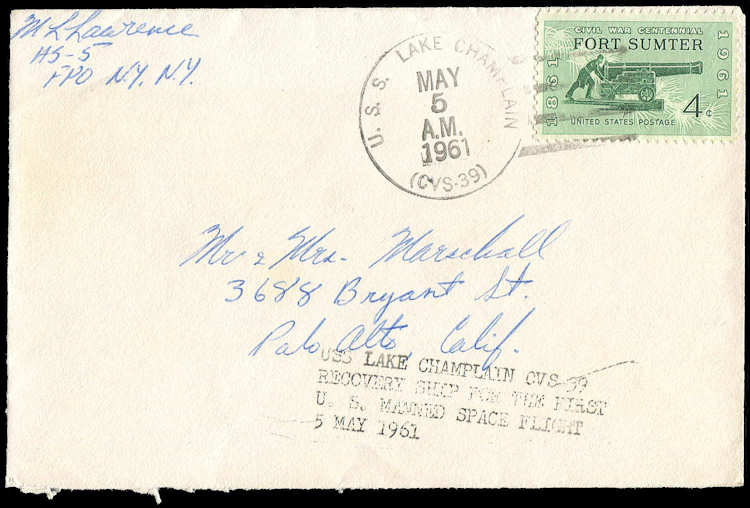 M L Lawrence
HS-5
FPO N.Y. N.Y.
U. S. S. LAKE CHAMPLAIN
MAY
5
A.M.
1961
(CVS-39)
CIVIL WAR CENTENNIAL
FORT SUMTER
1861
1961
4¢
UNITED STATES POSTAGE
Mr & Mrs. Marschall
3688 Bryant St.
Palo Alto, Calif.
USS LAKE CHAMPLAIN CVS-39
RECOVERY SHIP FOR THE FIRST
U. S. MANNED SPACE FLIGHT
5 MAY 1961